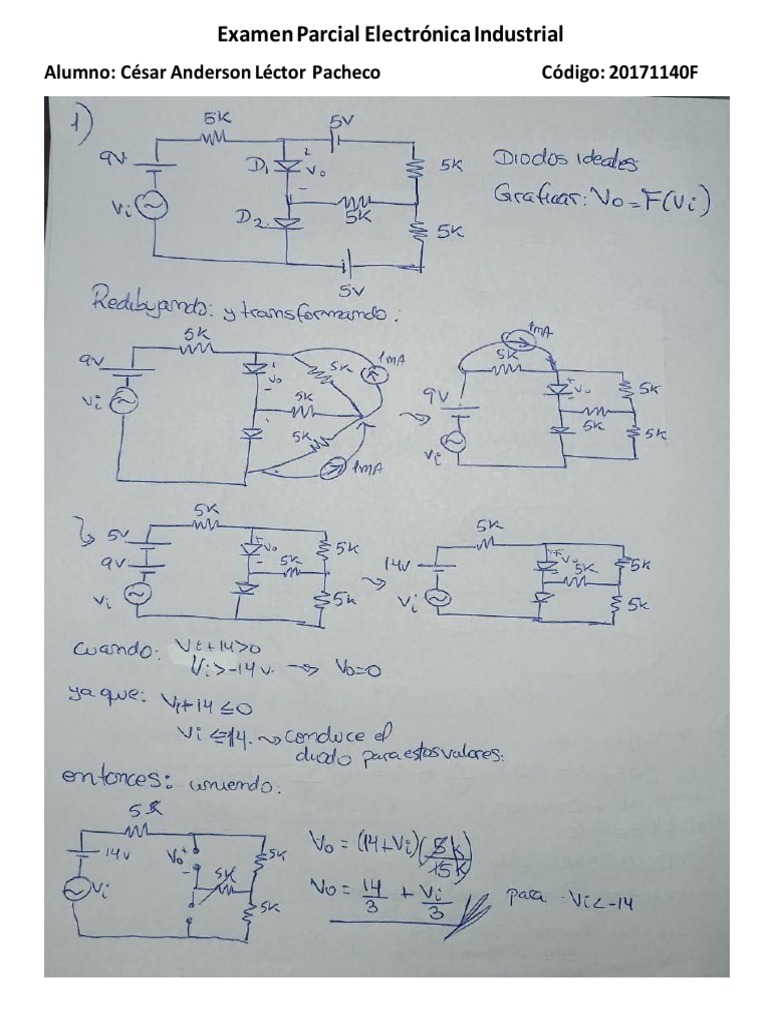 Examen Parcial Electrónica Industrial
Alumno: César Anderson Léctor Pacheco Código: 20171140F
1)
5K 5V
9V D1 + Vo - 5K Diodos ideales
Vi D2 5K Graficar: Vo=F(Vi)
5K
5V
Redibujando: y transformando:
5K 1mA
9V + Vo - 5K 1mA 5K
Vi 5K 9V + Vo 5K
5K 5K 5K
1mA Vi
5K 5K
5V + Vo - 5K 14V + Vo 5K
9V 5K 5K
Vi 5K Vi 5K
cuando: Vi+14>0
Vi>-14v. Vo=0
ya que: Vi+14≤0
Vi≤-14. conduce el
diodo para estos valores.
entonces: uniendo:
5K
14v Vo + - 5K Vo = (14+Vi)(5K/15K)
Vi 5K 5K Vo = 14/3 + Vi/3 para Vi<-14